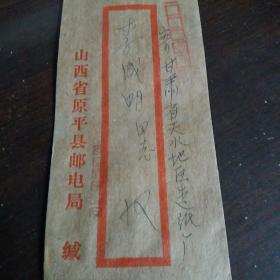 寄甘肃省天水地区造纸厂
李成明同志 收
山西省原平县邮电局 缄